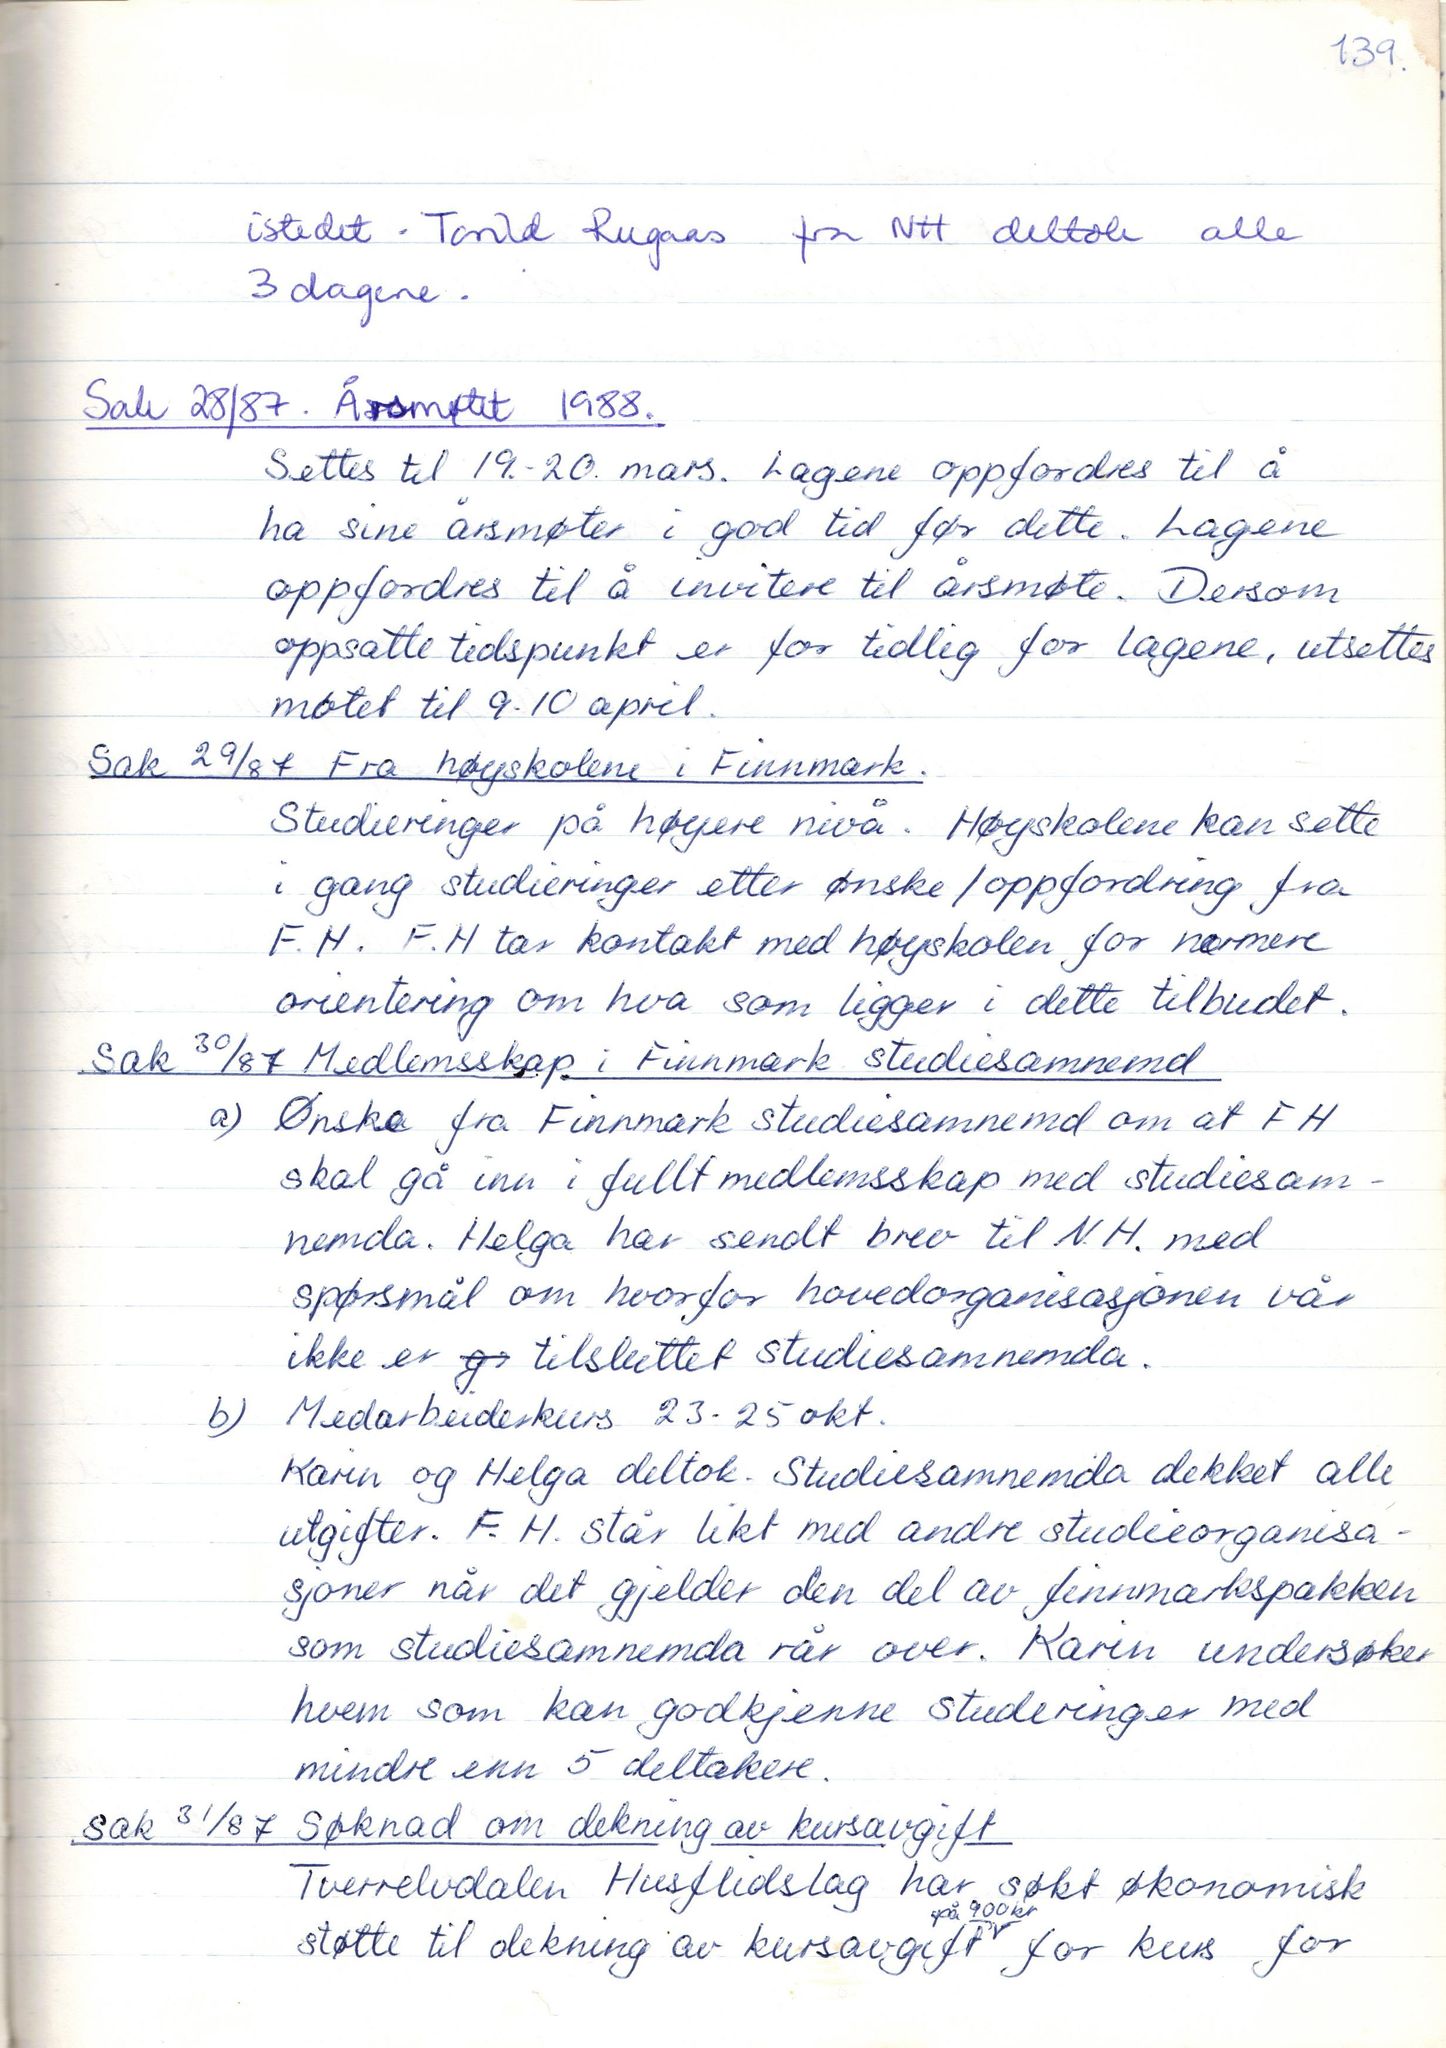 139.
istedet. Torild Rugaas fra NH deltok alle
3 dagene.
Sak 28/87. Årsmøtet 1988.
Settes til 19.-20. mars. Lagene oppfordres til å
ha sine årsmøter i god tid før dette. Lagene
oppfordres til å invitere til årsmøte. Dersom
oppsatte tidspunkt er for tidlig for lagene, utsettes
møtet til 9-10 april.
Sak 29/87 Fra høyskolene i Finnmark.
Studieringer på høyere nivå. Høyskolene kan sette
i gang studieringer etter ønske/oppfordring fra
F.H. F.H tar kontakt med høyskolen for nærmere
orientering om hva som ligger i dette tilbudet.
Sak 30/87 Medlemsskap i Finnmark studiesamnemd
a) Ønske fra Finnmark studiesamnemd om at FH
skal gå inn i fullt medlemsskap med studiesam-
nemda. Helga har sendt brev til N.H. med
spørsmål om hvorfor hovedorganisasjonen vår
ikke er tilsluttet studiesamnemda.
b) Medarbeiderkurs 23-25 okt.
Karin og Helga deltok. Studiesamnemda dekket alle
utgifter. F.H. står likt med andre studieorganisa-
sjoner når det gjelder den del av finnmarkspakken
som studiesamnemda rår over. Karin undersøker
hvem som kan godkjenne studeringer med
mindre enn 5 deltakere.
Sak 31/87 Søknad om dekning av kursavgift
Tverrelvdalen Husflidslag har søkt økonomisk
på 900 kr
støtte til dekning av kursavgift for kurs for